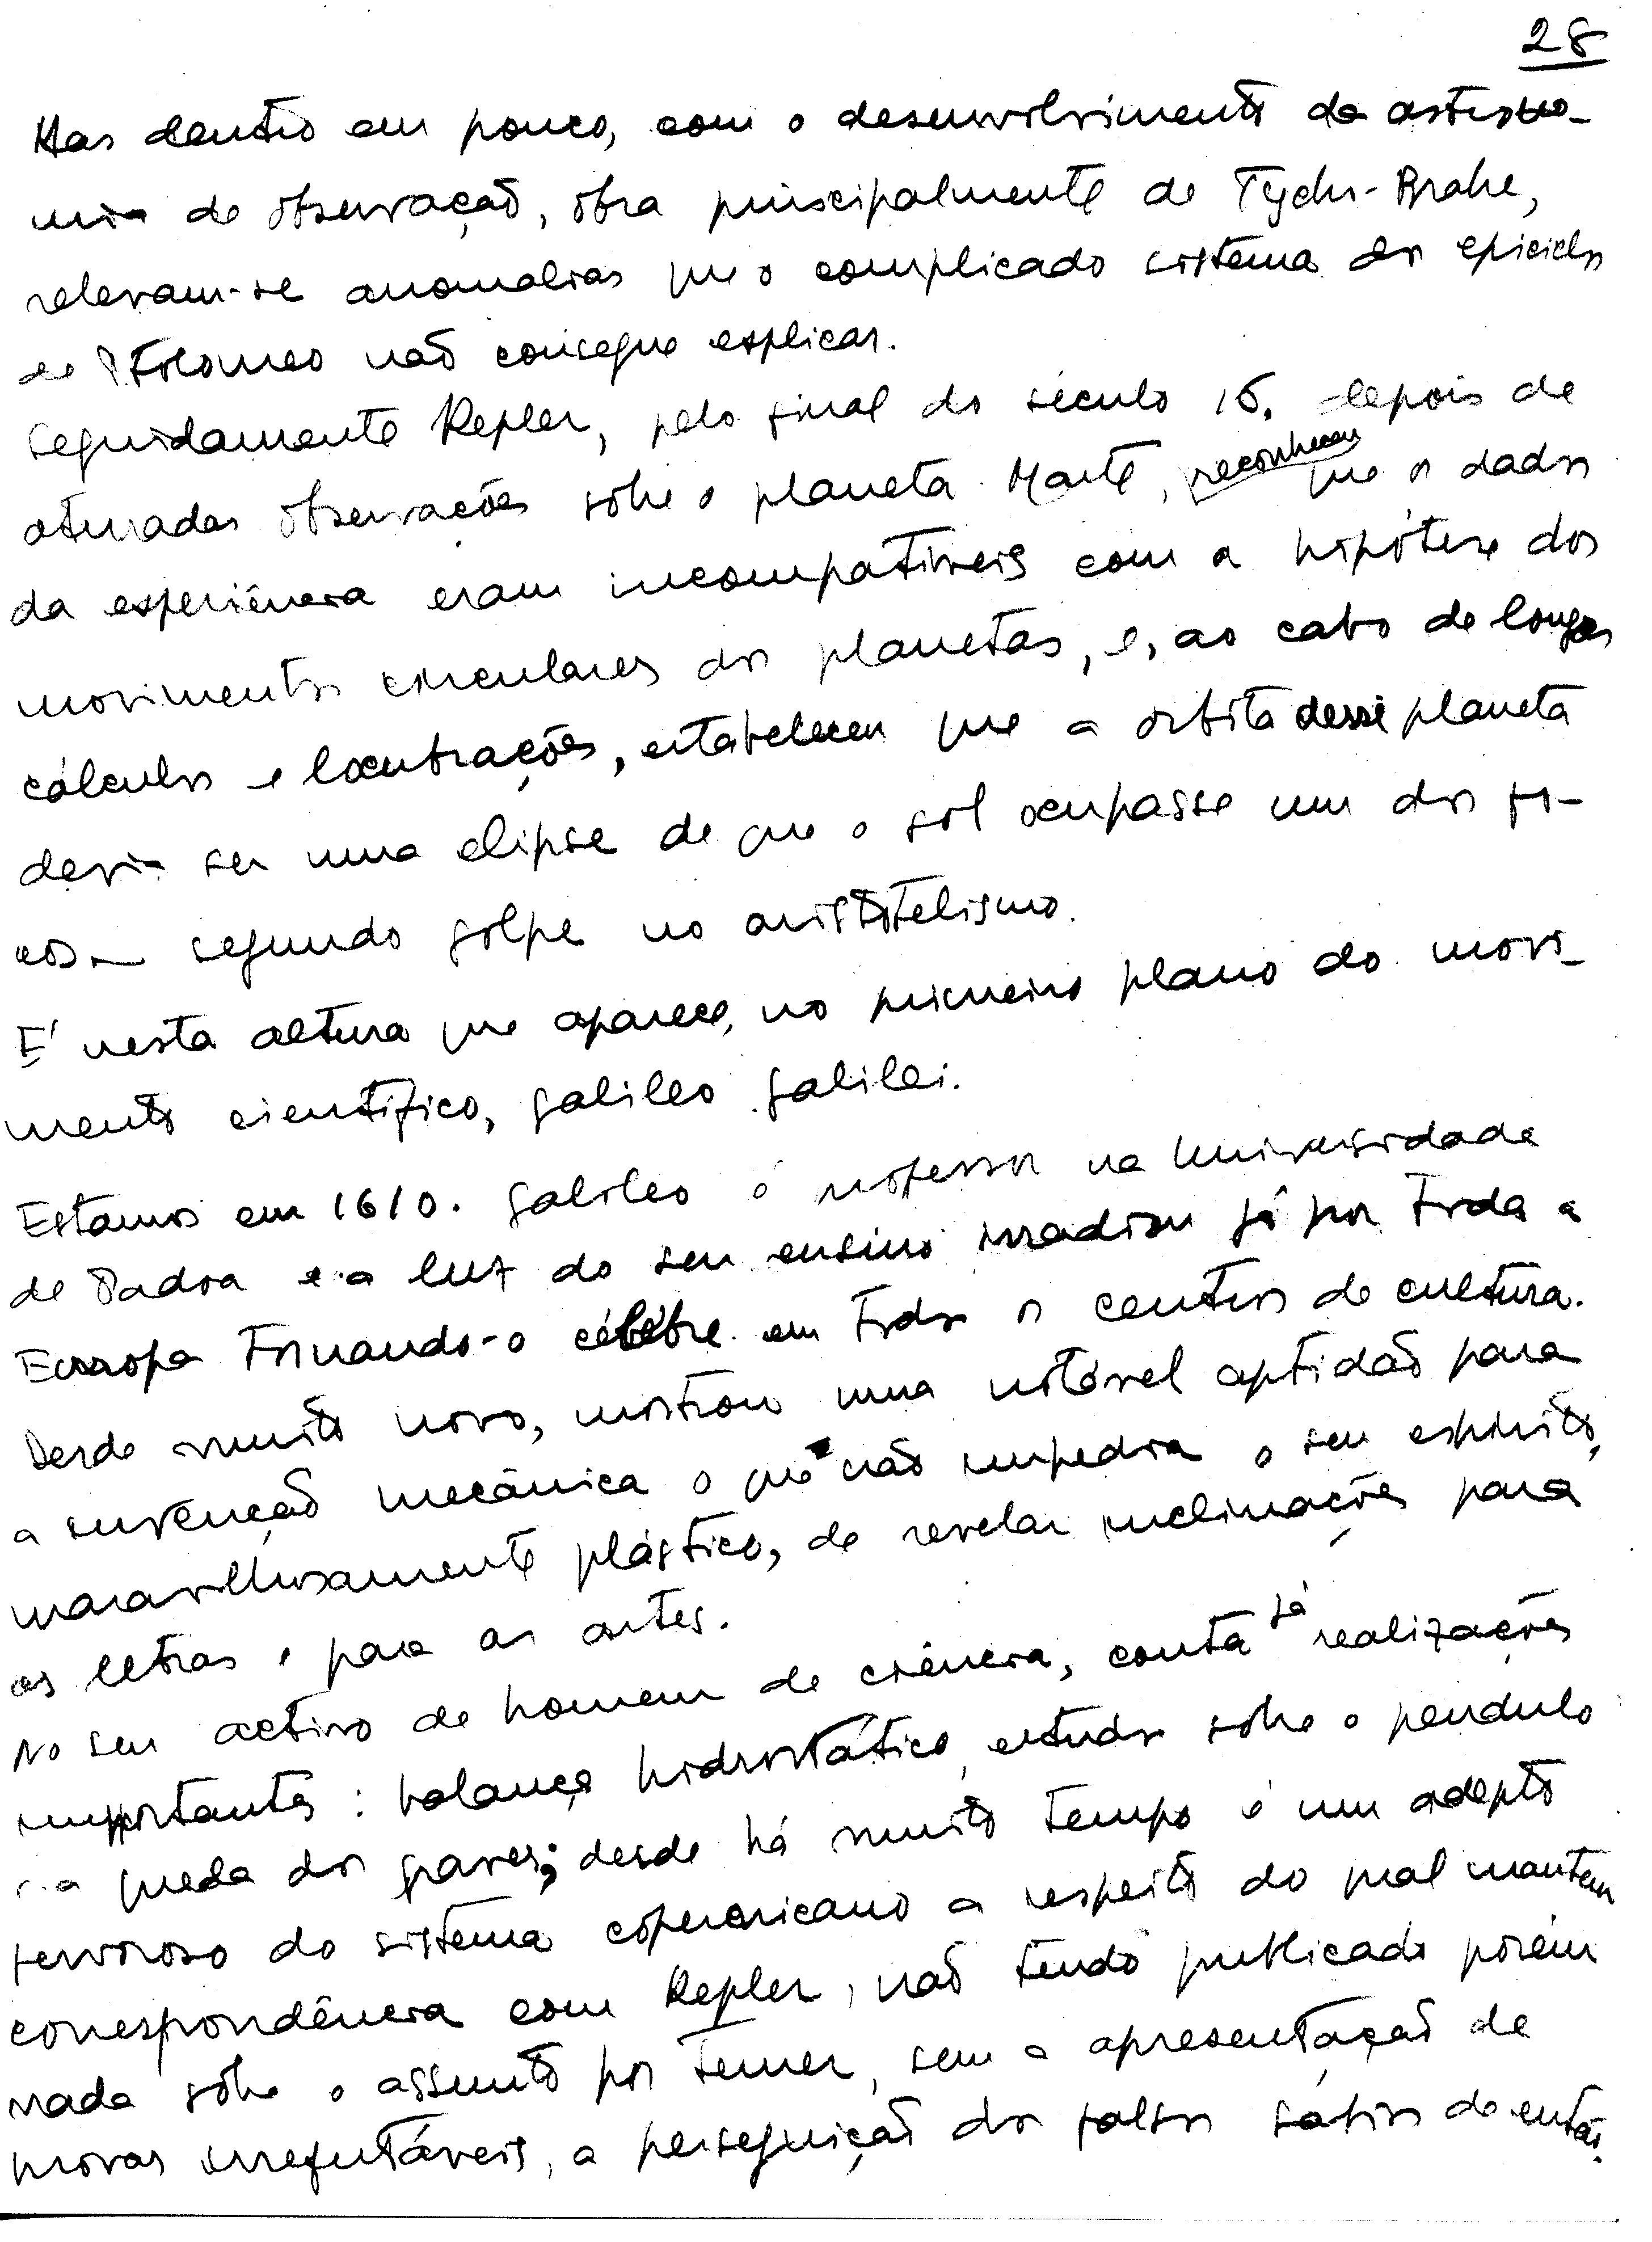 28
Mas dentro em pouco, com o desenvolvimento da astrono-
mia de observação, obra principalmente de Tycho-Brahe,
relevam-se anomalias que o complicado sistema dos epiciclos
de Ptolomeo não consegue explicar.
Seguidamente Kepler, pelo final do século 16, depois de
aturadas observações sobre o planeta Marte, reconheceu que os dados
da experiência eram incompatíveis com a hipótese dos
movimentos circulares dos planetas, e, ao cabo de longos
cálculos e locubrações, estabeleceu que a órbita desse planeta
devia ser uma elipse de que o sol ocupasse um dos fo-
cos — segundo golpe no aristotelismo.
É nesta altura que aparece, no primeiro plano do movi-
mento científico, Galileo Galilei.
Estamos em 1610. Galileo é professor na Universidade
de Padoa e a luz do seu ensino irradiou já por toda a
Europa tornando-o célebre em todos os centros de cultura.
Desde muito novo, mostrou uma notável aptidão para
a invenção mecânica o que não impedia o seu espírito,
maravilhosamente plástico, de revelar inclinações para
as letras e para as artes.
No seu activo de homem de ciência, conta já realizações
importantes: balança hidrostática, estudos sobre o pendulo
e a queda dos graves; desde há muito tempo é um adepto
fervoroso do sistema copernicano a respeito do qual mantem
correspondência com Kepler, não tendo publicado porém
nada sobre o assunto por temer, sem a apresentação de
provas irrefutáveis, a perseguição dos falsos sábios de então.